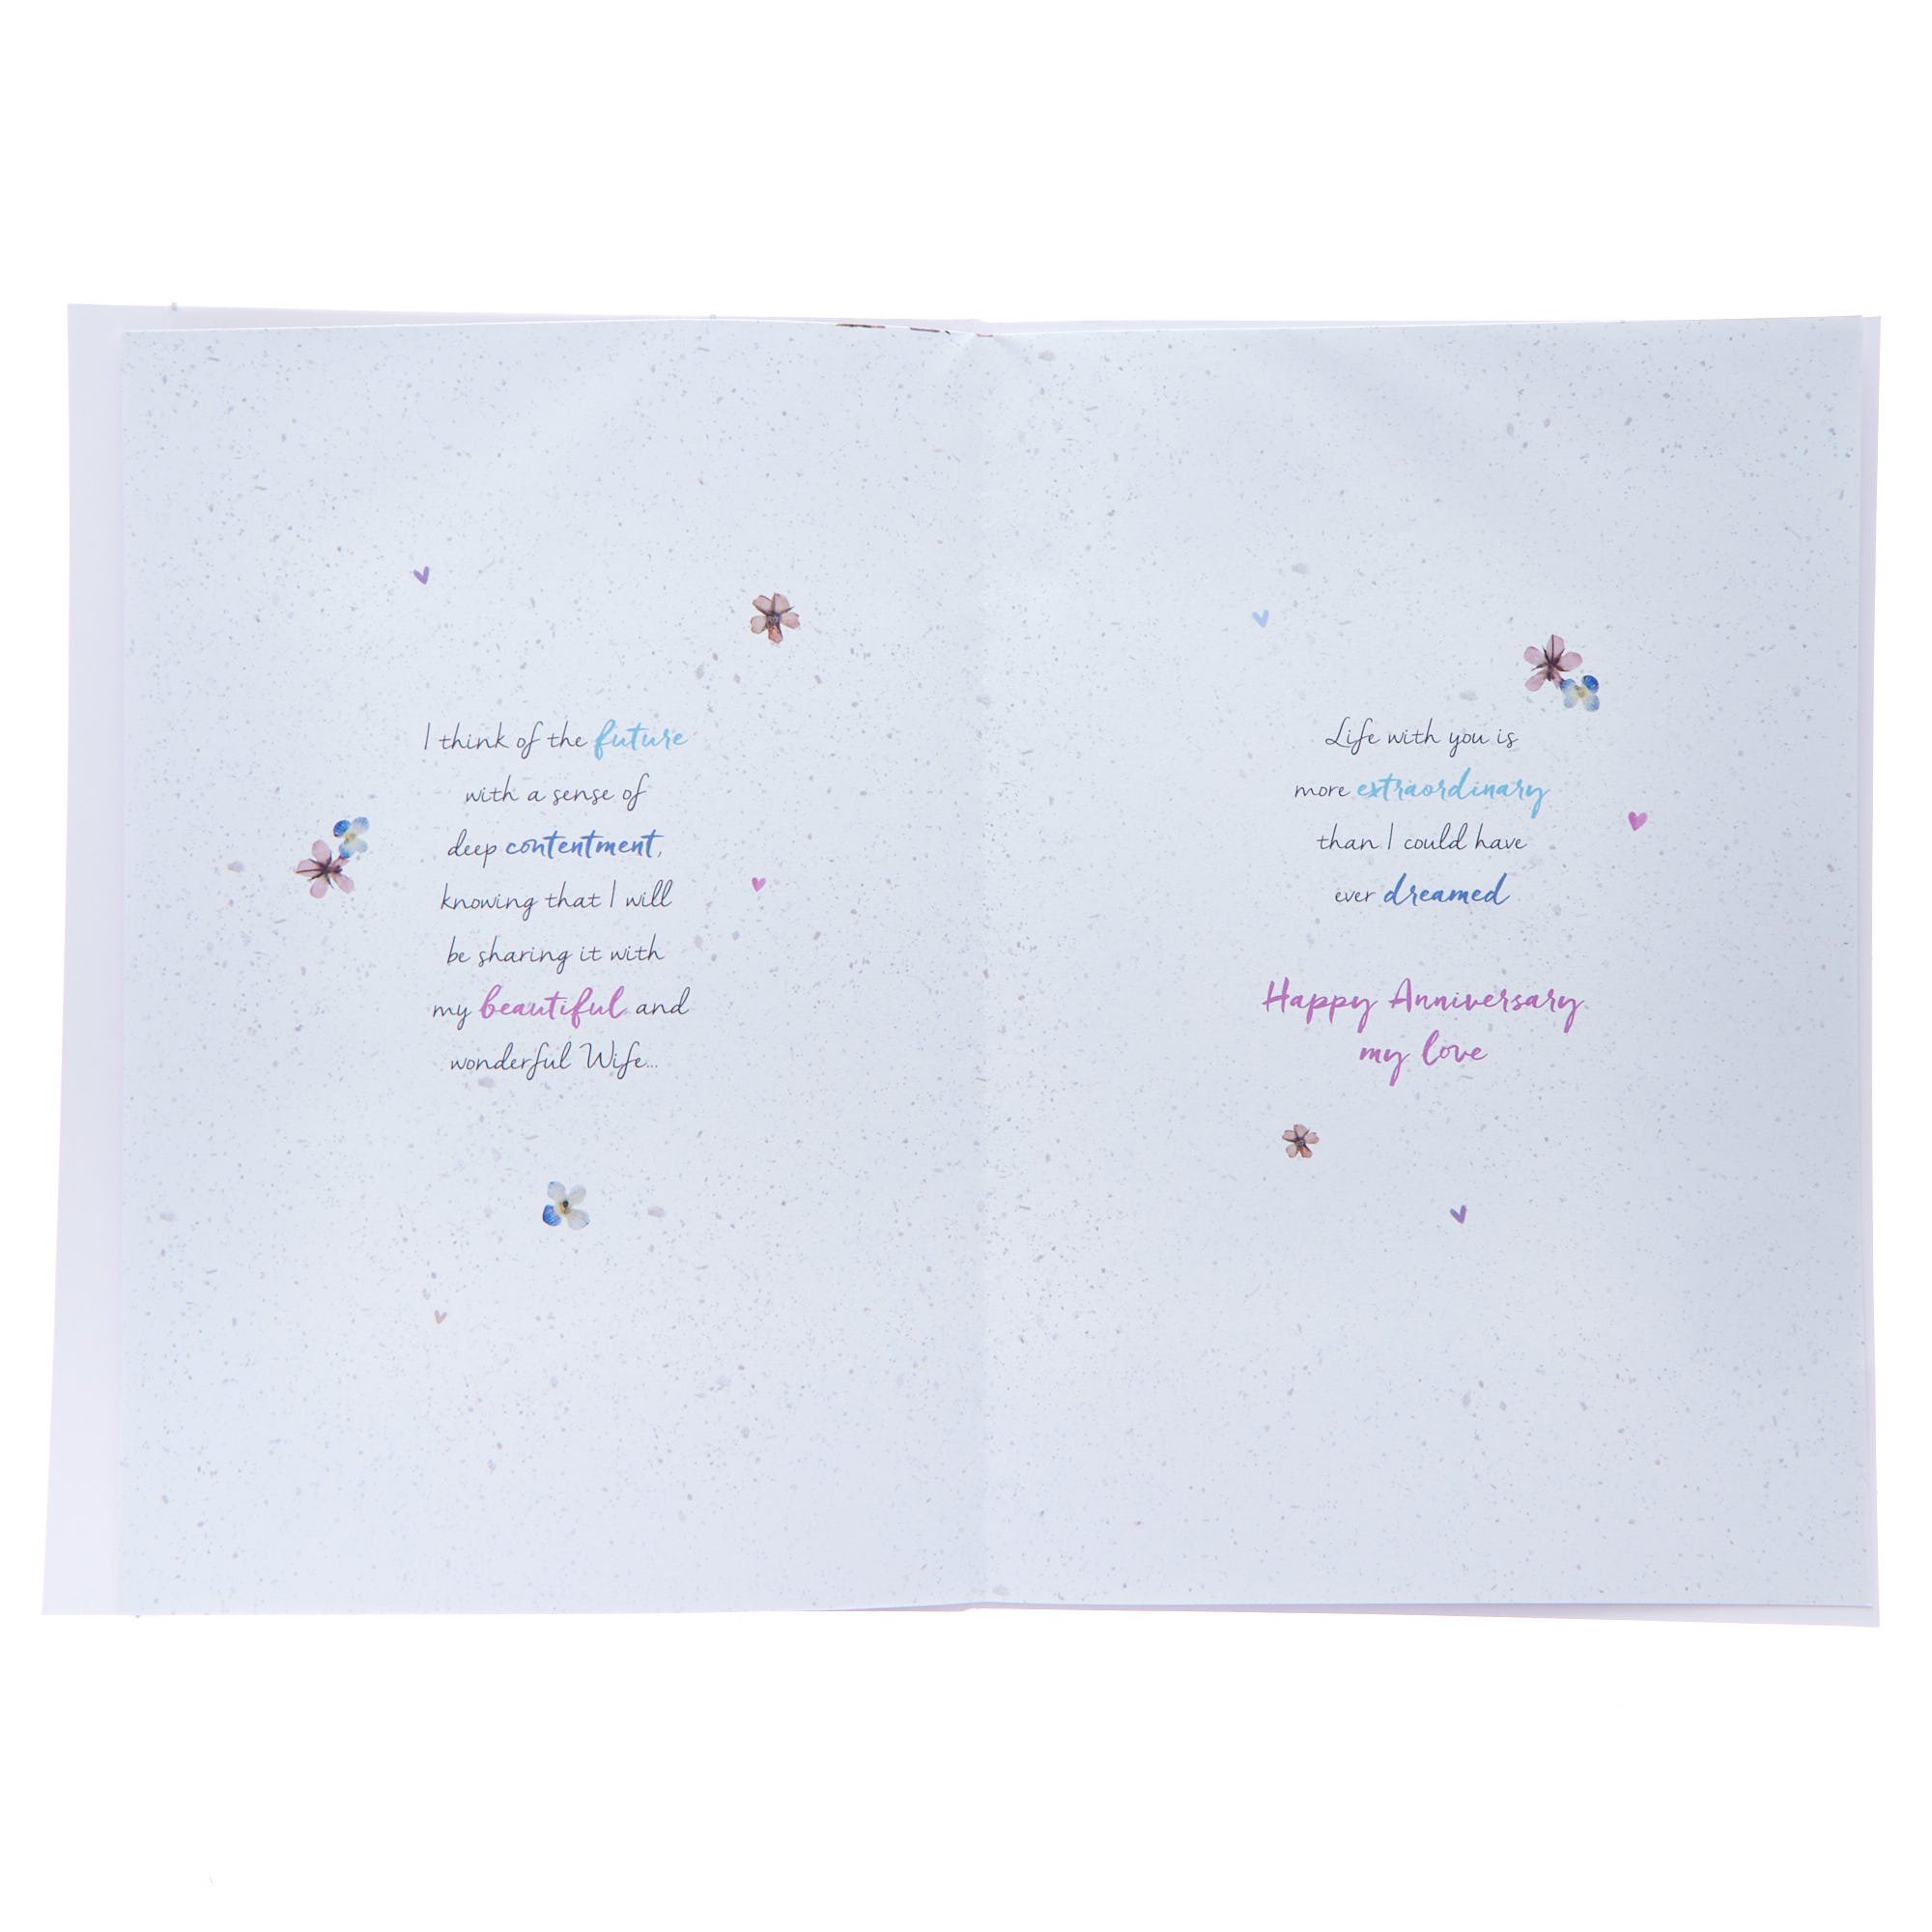 I think of the future
with a sense of
deep contentment,
knowing that I will
be sharing it with
my beautiful and
wonderful Wife...
Life with you is
more extraordinary
than I could have
ever dreamed
Happy Anniversary
my love